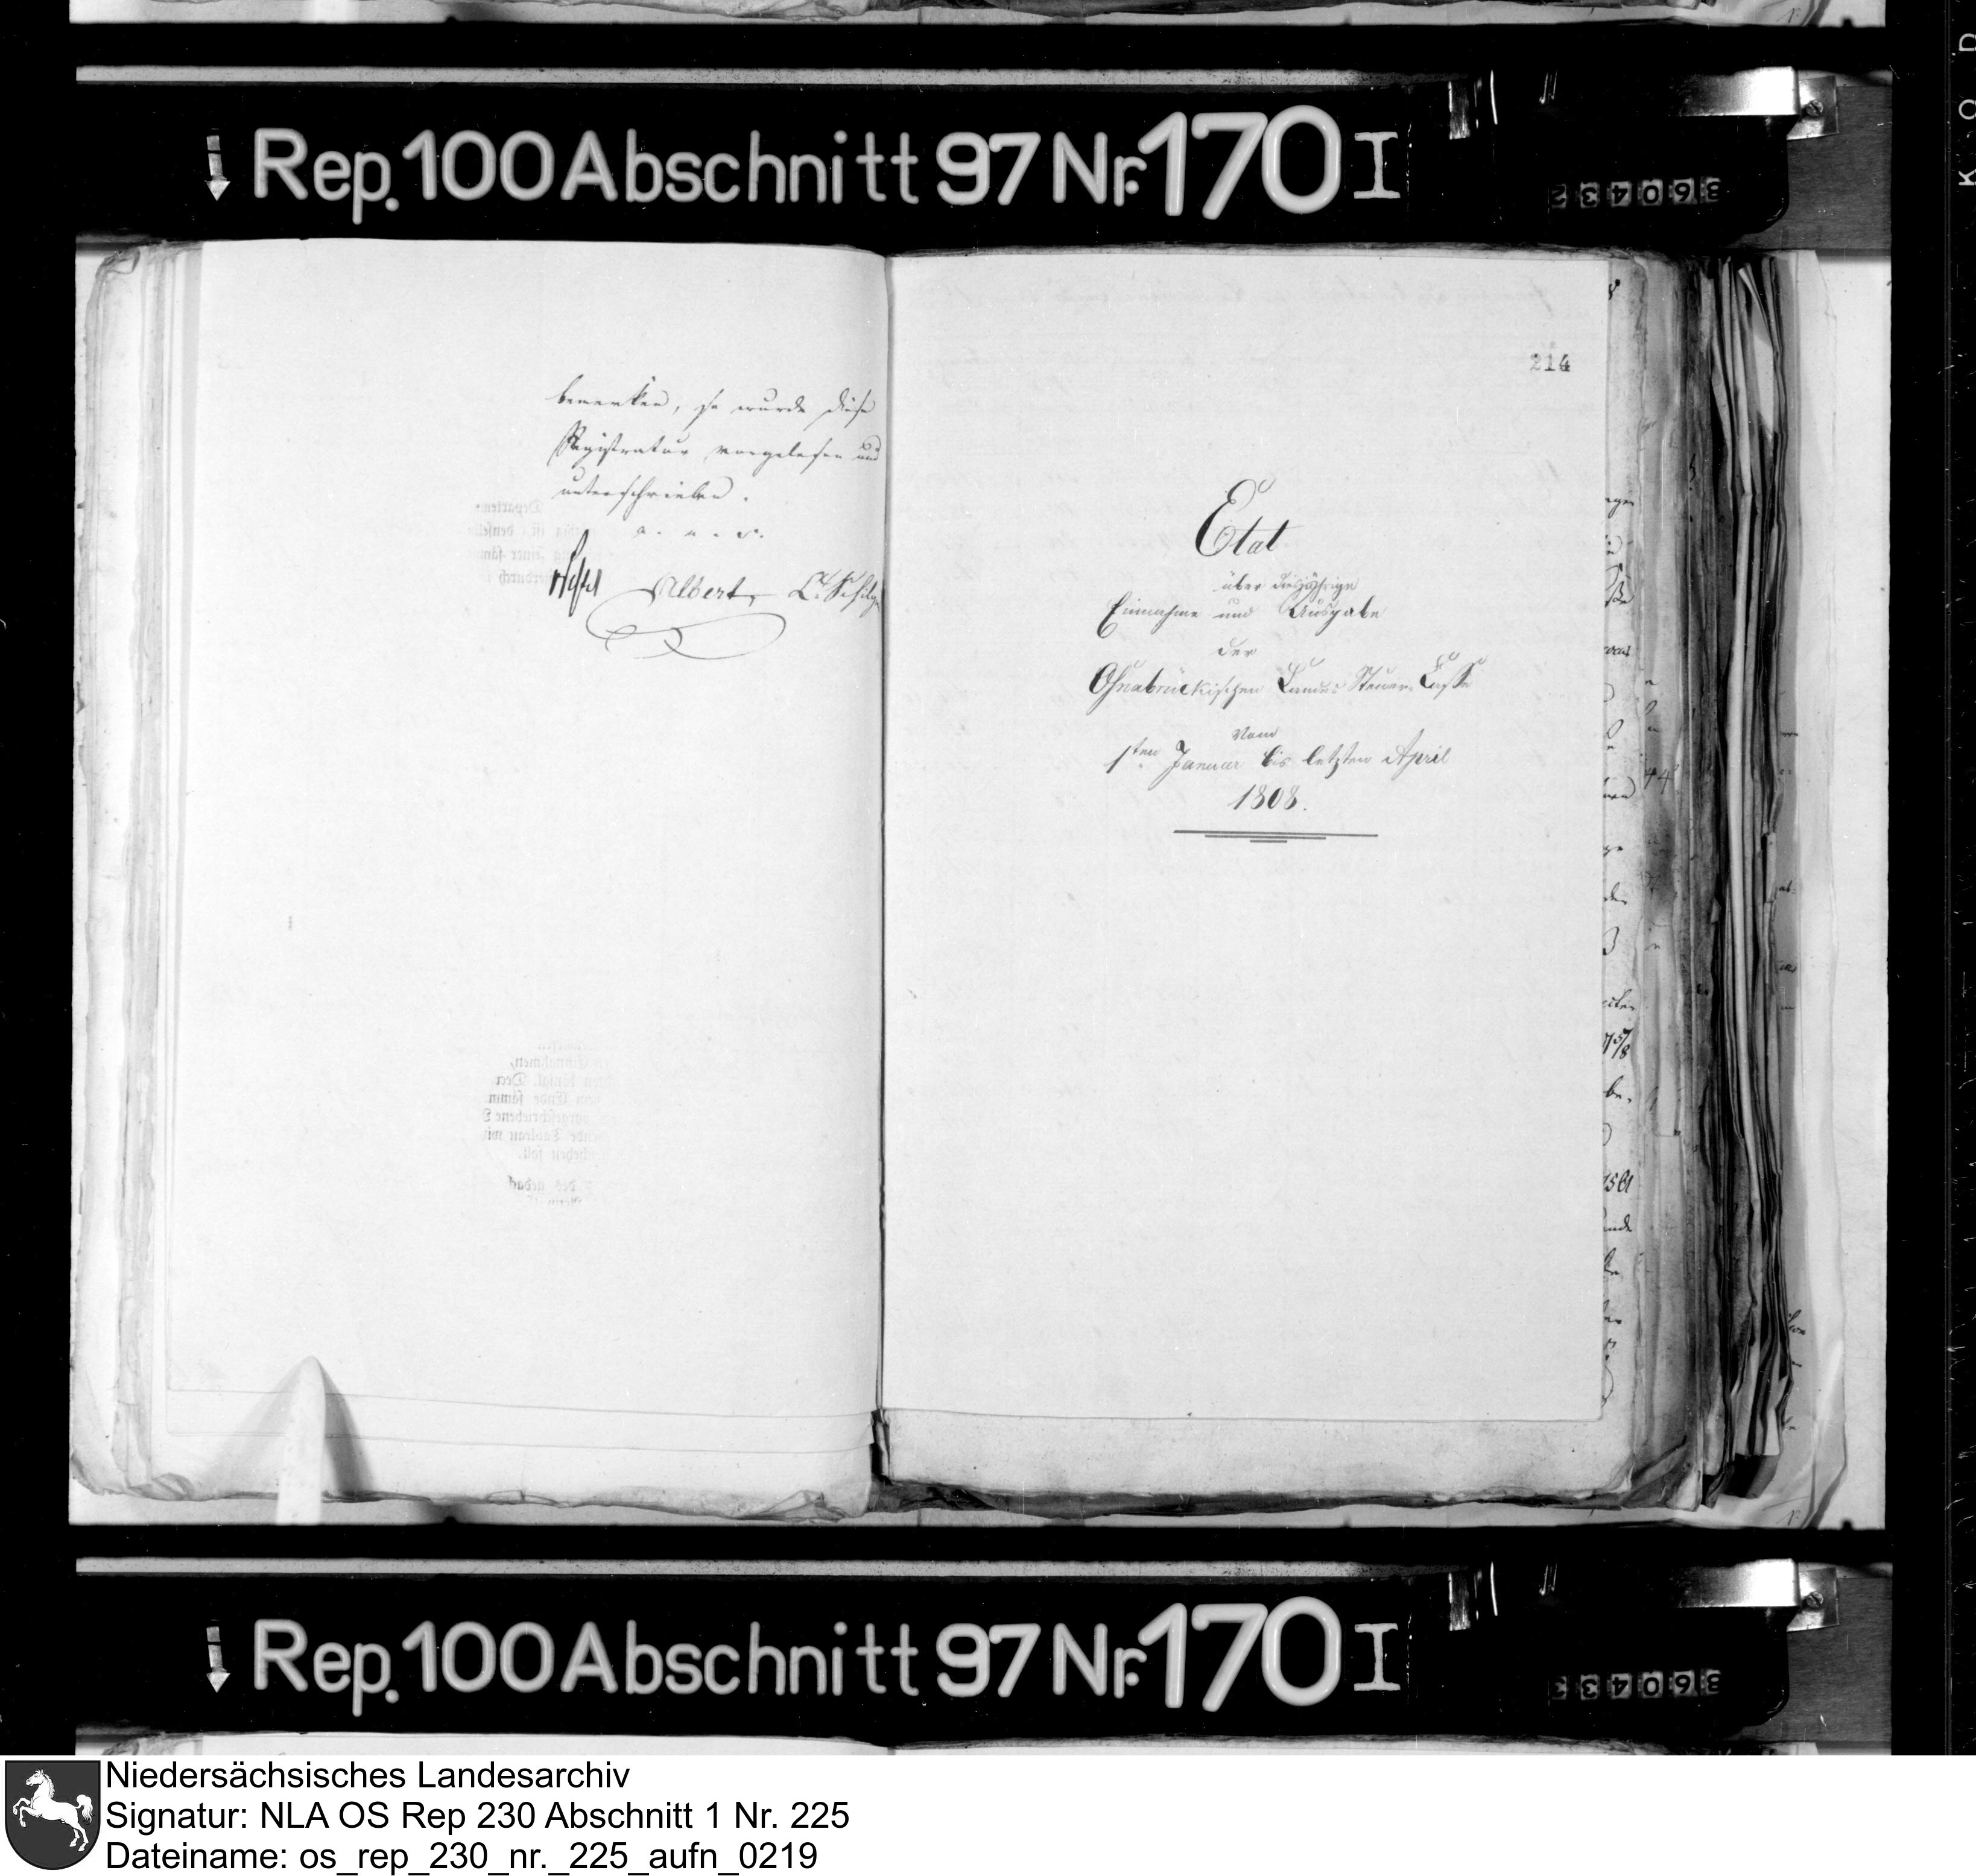 Rep. 100 Abschnitt 97 Nr. 170 I
360432
bemerken, so wurde diese
Registratur vorgelesen und
unterschrieben.
a. u. s.
Albert
214
Etat
über diesjährige
Einnahme und Ausgabe
der
Osnabrückischen Landes Steuer Casse
vom
1ten Januar bis letzten April
1808.
Rep. 100 Abschnitt 97 Nr. 170 I
360433
Niedersächsisches Landesarchiv
Signatur: NLA OS Rep 230 Abschnitt 1 Nr. 225
Dateiname: os_rep_230_nr._225_aufn_0219